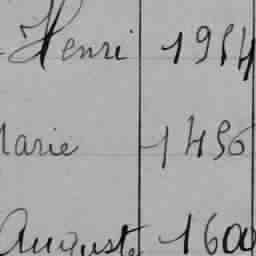 Henri 1954
Marie 1456
Auguste 1600